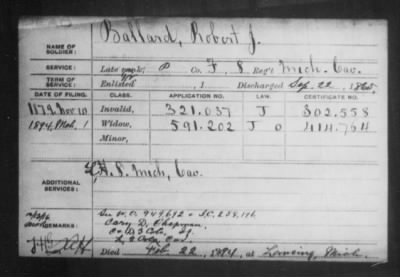 NAME OF SOLDIER: Ballard, Robert J.
SERVICE: Late rank, P Co. F, 8 Reg't Mich. Cav.
TERM OF SERVICE: Enlisted , 1 Discharged Sep. 22, 1865
DATE OF FILING. CLASS. APPLICATION NO. LAW. CERTIFICATE NO.
1879 Nov 10 Invalid, 321.037 J 302.558
1894, Mch. 1 Widow, 591.202 J 0 414.764
Minor,
ADDITIONAL SERVICES: H. 8 Mich. Cav.
REMARKS: See W.O. 949692
Cary D. Chapman
Co.
Died Feb. 22, 1894, at Lansing, Mich.